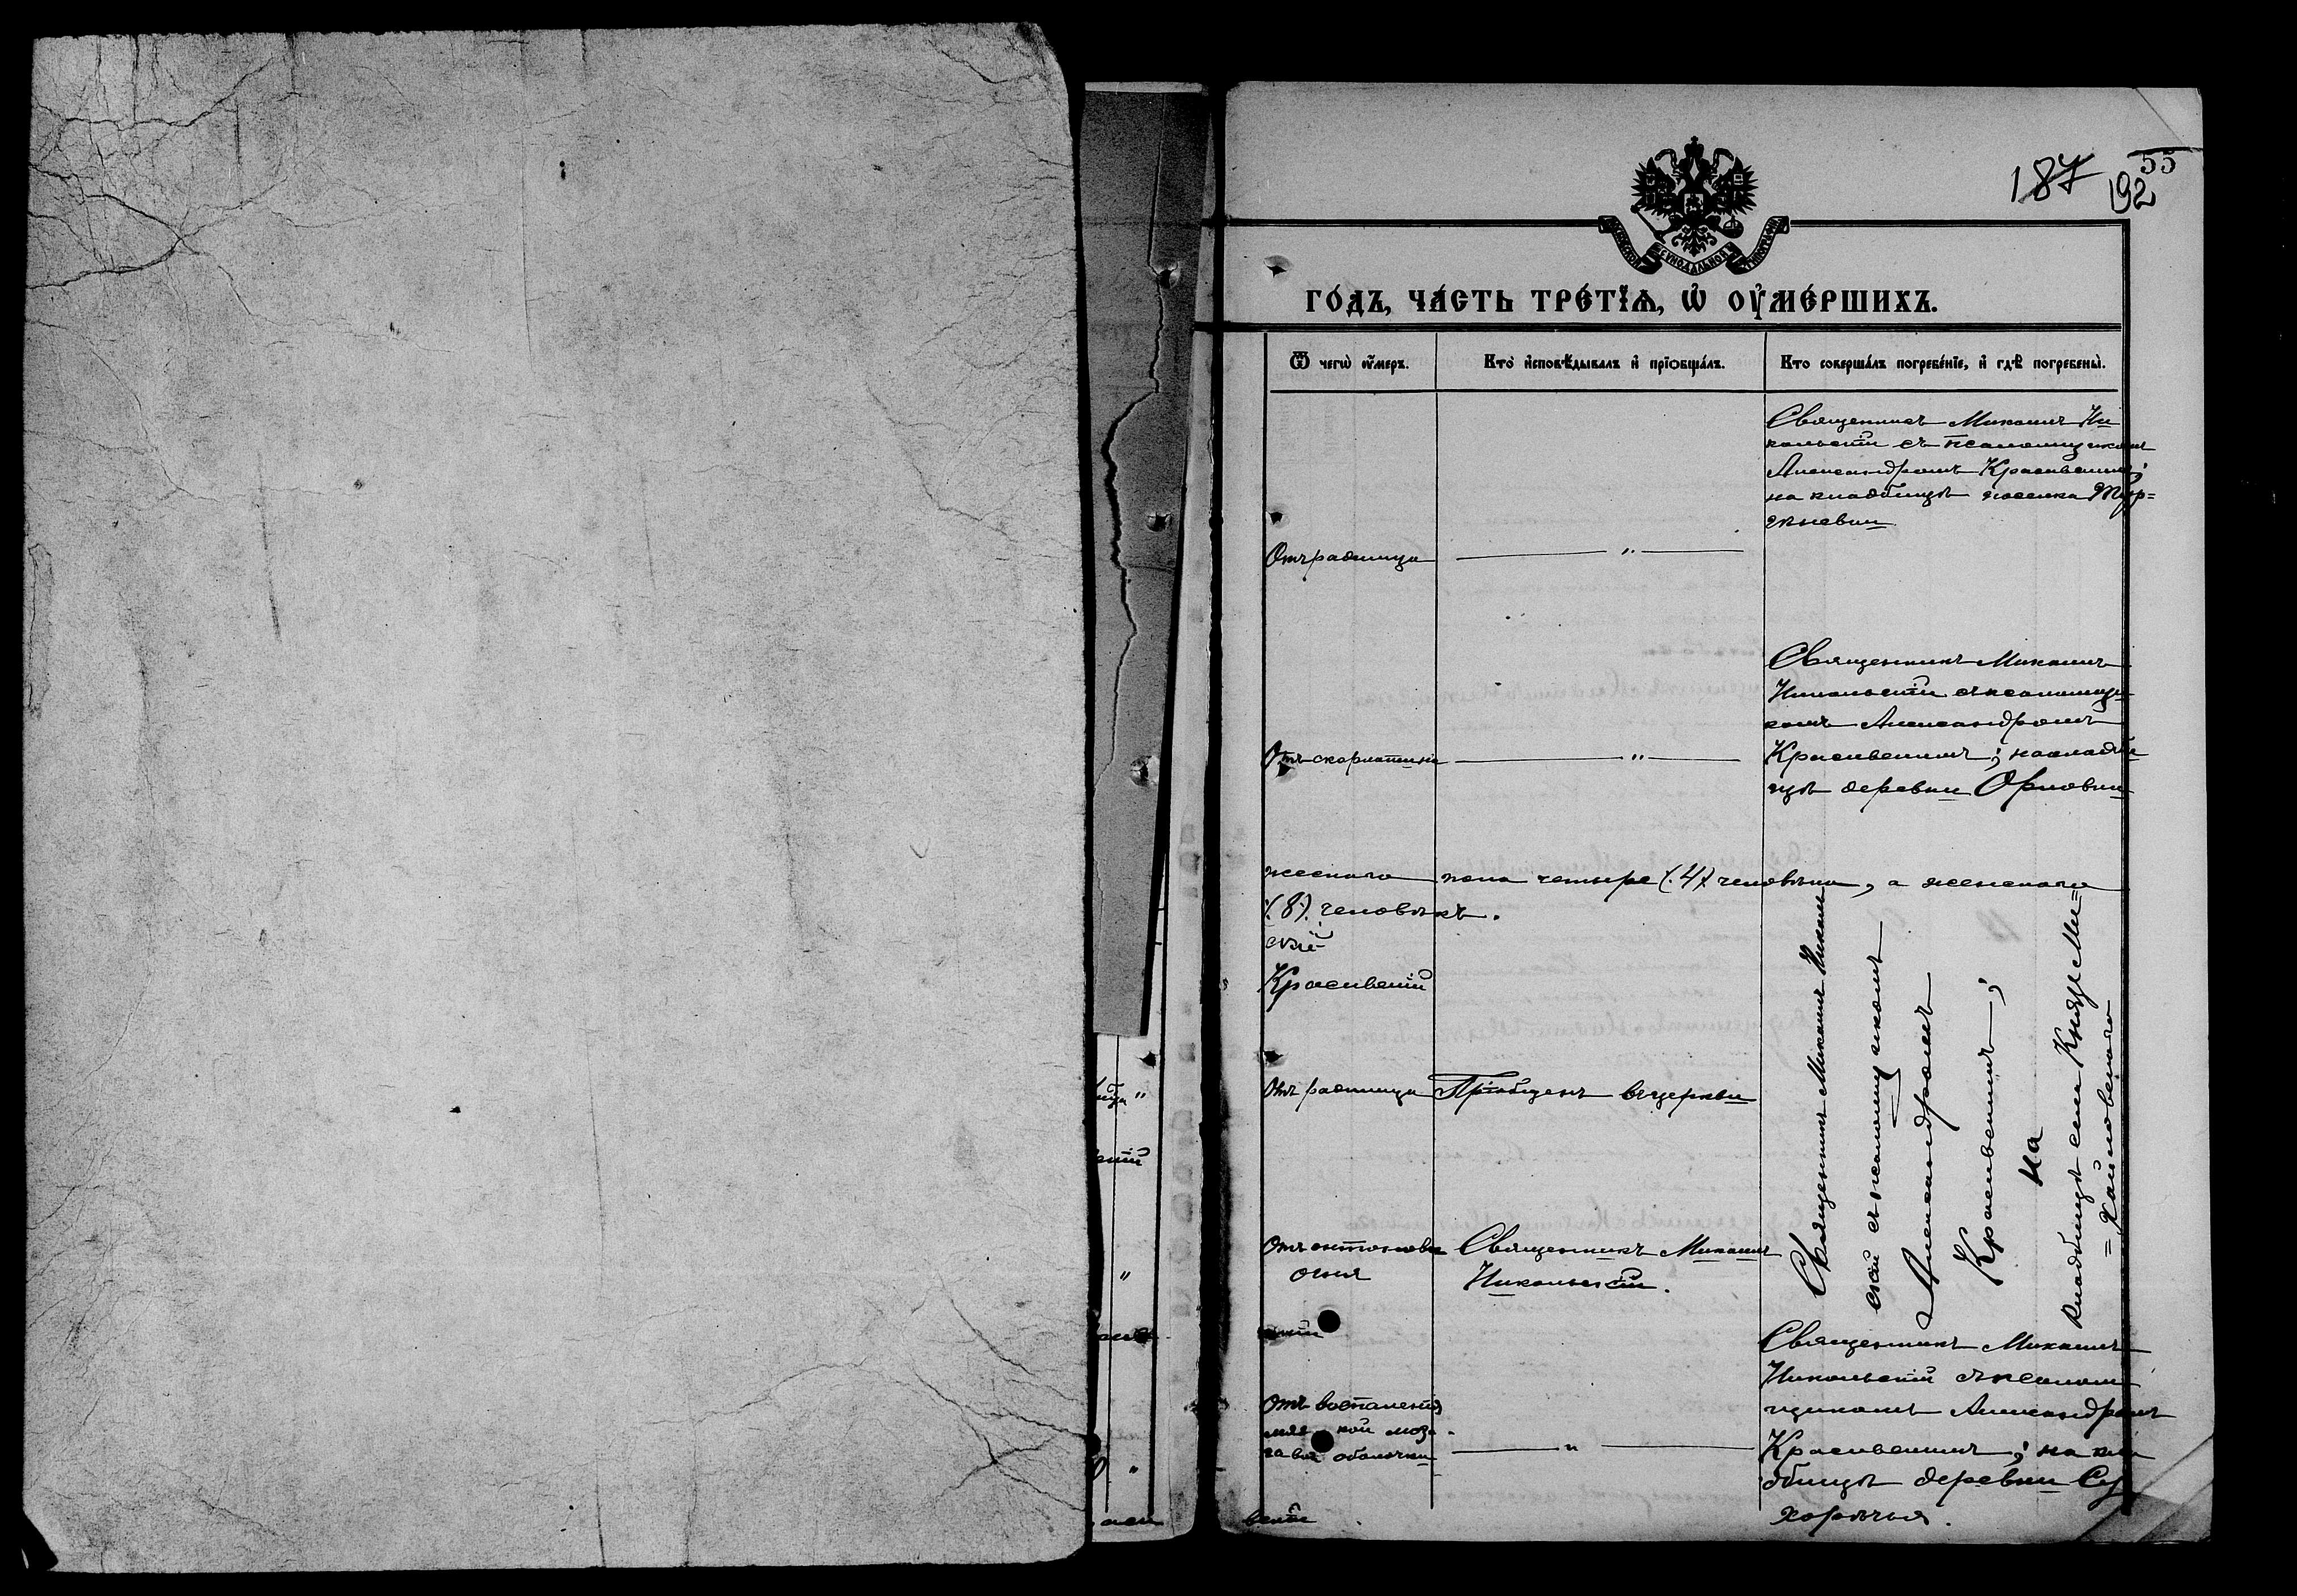 187 192 55
МОСКОВСКОЙ СѴНОДАЛЬНОЙ ТИПОГРАФІИ
ГО́ДЪ, ЧА́СТЬ ТРЕ́ТЇѦ, Ѡ҆ ОУ҆МЕ́РШИХЪ.
Ѿ чегѡ̀ ᲂу҆́меръ.
Кто̀ и҆сповѣ́дывалъ и҆ прїобща́лъ.
Кто соверша́лъ погребе́нїе, и҆ гдѣ̀ погребены̀.
Священникъ Михаилъ Ни
кольскій съ псаломщикомъ
Александромъ Красивскимъ;
на кладбищѣ поселка
Отъ родимца
"
Священникъ Михаилъ
Никольскій съ псаломщи
комъ Александромъ
Отъ скарлатины
"
Красивскимъ; на кладби
щѣ деревни Орловки
женскаго пола четыре (.4.) человѣка, а женскаго
(.8.) человѣкъ.
скій
Красивскій
Отъ родимца
Пріобщенъ въ церкви
Священникъ Михаилъ Николь
скій съ псаломщикомъ
Александромъ
Красивскимъ;
на
кладбищѣ села Князе Ми=
=хайловскаго
Отъ антонова
огня
Священникъ Михаилъ
Никольскій.
Священникъ Михаилъ
Никольскій съ псалом
щикомъ Александромъ
Красивскимъ; на кла
дбищѣ деревни Су
хорѣчья.
Отъ воспаленія
мягкой мозго
вой оболочки
"
вскій